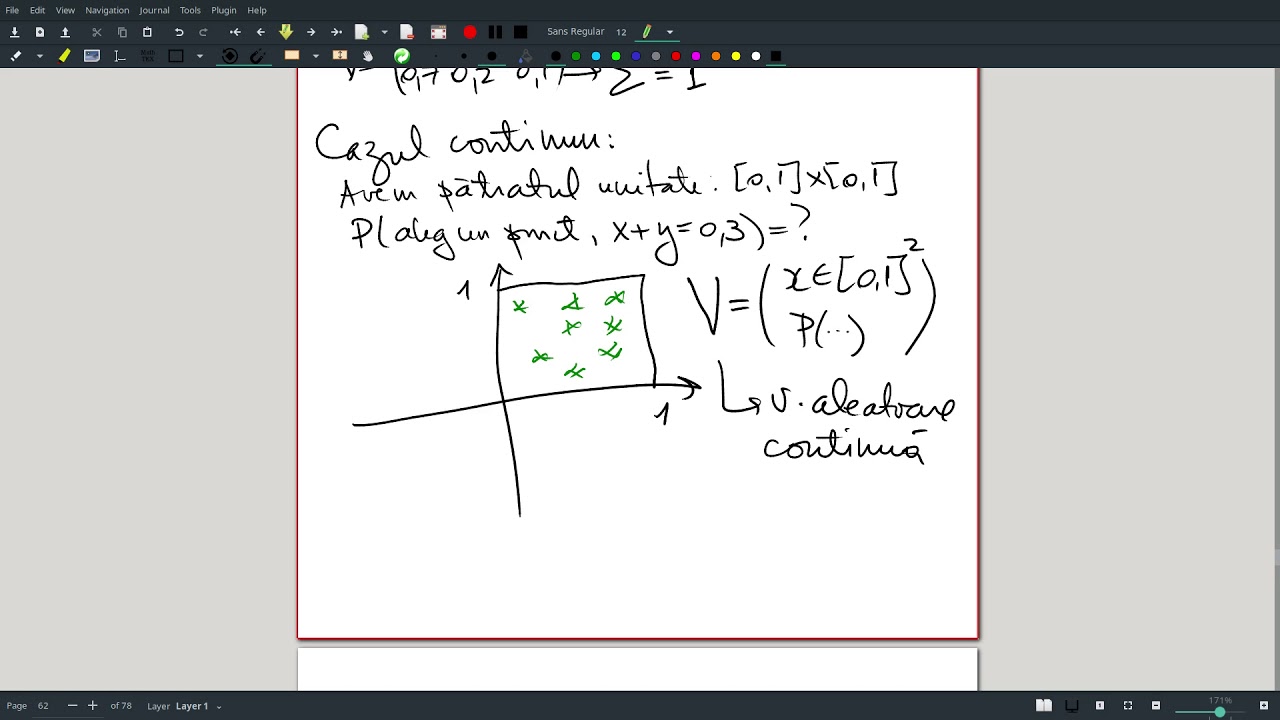 File Edit View Navigation Journal Tools Plugin Help
Sans Regular 12
(0,7 0,2 0,1) → Σ = 1
Cazul continuu:
Avem pătratul unitate: [0,1]x[0,1]
P(aleg un punct, x+y=0,3)=?
1
V = (x∈[0,1]²
P(...))
1
↳ v. aleatoare
continuă
Page 62 of 78 Layer Layer 1 171%